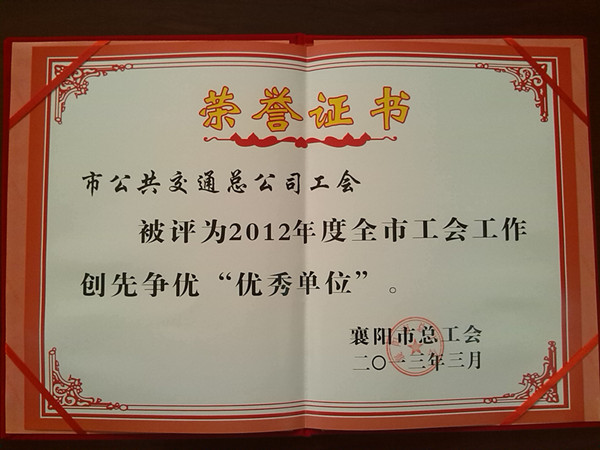 荣誉证书
市公共交通总公司工会
被评为2012年度全市工会工作
创先争优“优秀单位”。
襄阳市总工会
二〇一三年三月